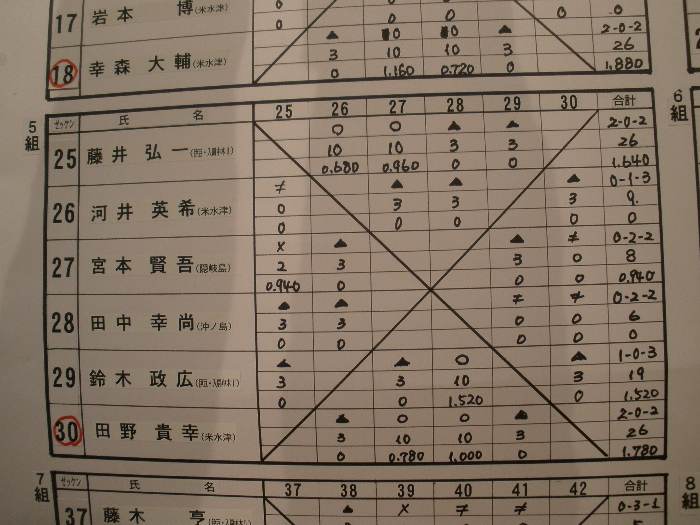 17 岩本 博(米水津) 0 0 0 0 0 0
2-0-2
18 幸森 大輔(米水津) 3 10 10 3 26
0 1.160 0.720 0 1.880
5組
ゼッケン 氏 名 25 26 27 28 29 30 合計
○ ○ ▲ ▲ 2-0-2
25 藤井 弘一 10 10 3 3 26
0.680 0.960 0 0 1.640
≠ ▲ ▲ ▲ 0-1-3
26 河井 英希(米水津) 0 3 3 3 9
0 0 0 0 0
× ▲ ▲ ≠ 0-2-2
27 宮本 賢吾(隠岐島) 2 3 3 0 8
0.940 0 0 0 0.940
▲ ▲ ≠ ≠ 0-2-2
28 田中 幸尚(沖ノ島) 3 3 0 0 6
0 0 0 0 0
▲ ▲ ○ ▲ 1-0-3
29 鈴木 政広 3 3 10 3 19
0 0 1.520 0 1.520
▲ ○ ○ ▲ 2-0-2
30 田野 貴幸(米水津) 3 10 10 3 26
0 0.780 1.000 0 1.780
6組
7組
ゼッケン 氏 名 37 38 39 40 41 42 合計
8組
▲ × ≠ ≠ 0-3-1
37 藤木 亨